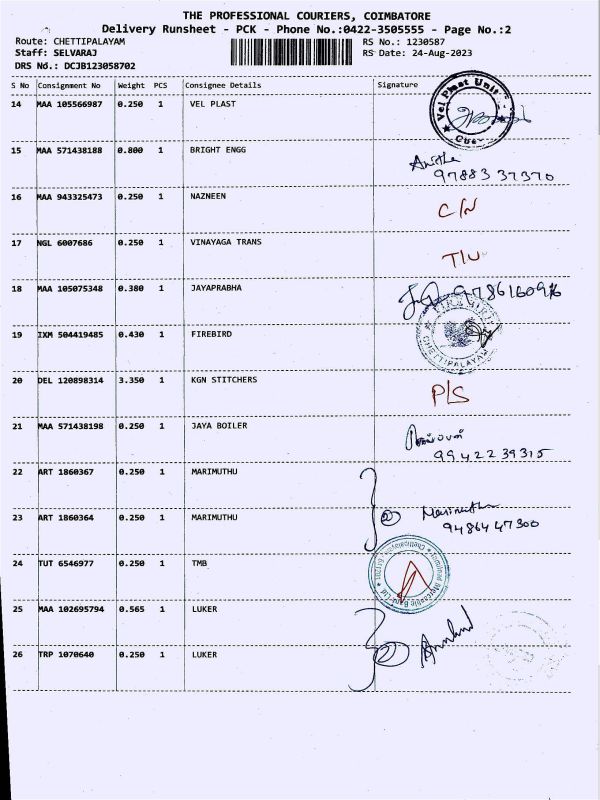 THE PROFESSIONAL COURIERS, COIMBATORE
Delivery Runsheet - PCK - Phone No.:0422-3505555 - Page No.:2
Route: CHETTIPALAYAM RS No.: 1230587
Staff: SELVARAJ RS Date: 24-Aug-2023
DRS No.: DCJB123058702
S No Consignment No Weight PCS Consignee Details Signature
14 MAA 105566987 0.250 1 VEL PLAST
Vel Plast Unit
15 MAA 571438188 0.800 1 BRIGHT ENGG
Anitha
97883 37370
16 MAA 943325473 0.250 1 NAZNEEN C/N
17 NGL 6007686 0.250 1 VINAYAGA TRANS
18 MAA 105075348 0.380 1 JAYAPRABHA
19 IXM 504419485 0.430 1 FIREBIRD
FIREBIRD
CHETTIPALAYAM
20 DEL 120898314 3.350 1 KGN STITCHERS P/S
21 MAA 571438198 0.250 1 JAYA BOILER
9942239315
22 ART 1860367 0.250 1 MARIMUTHU
Marimuthu
23 ART 1860364 0.250 1 MARIMUTHU
9486447300
24 TUT 6546977 0.250 1 TMB
Tamilnad Mercantile Bank Ltd
25 MAA 102695794 0.565 1 LUKER
26 TRP 1070640 0.250 1 LUKER